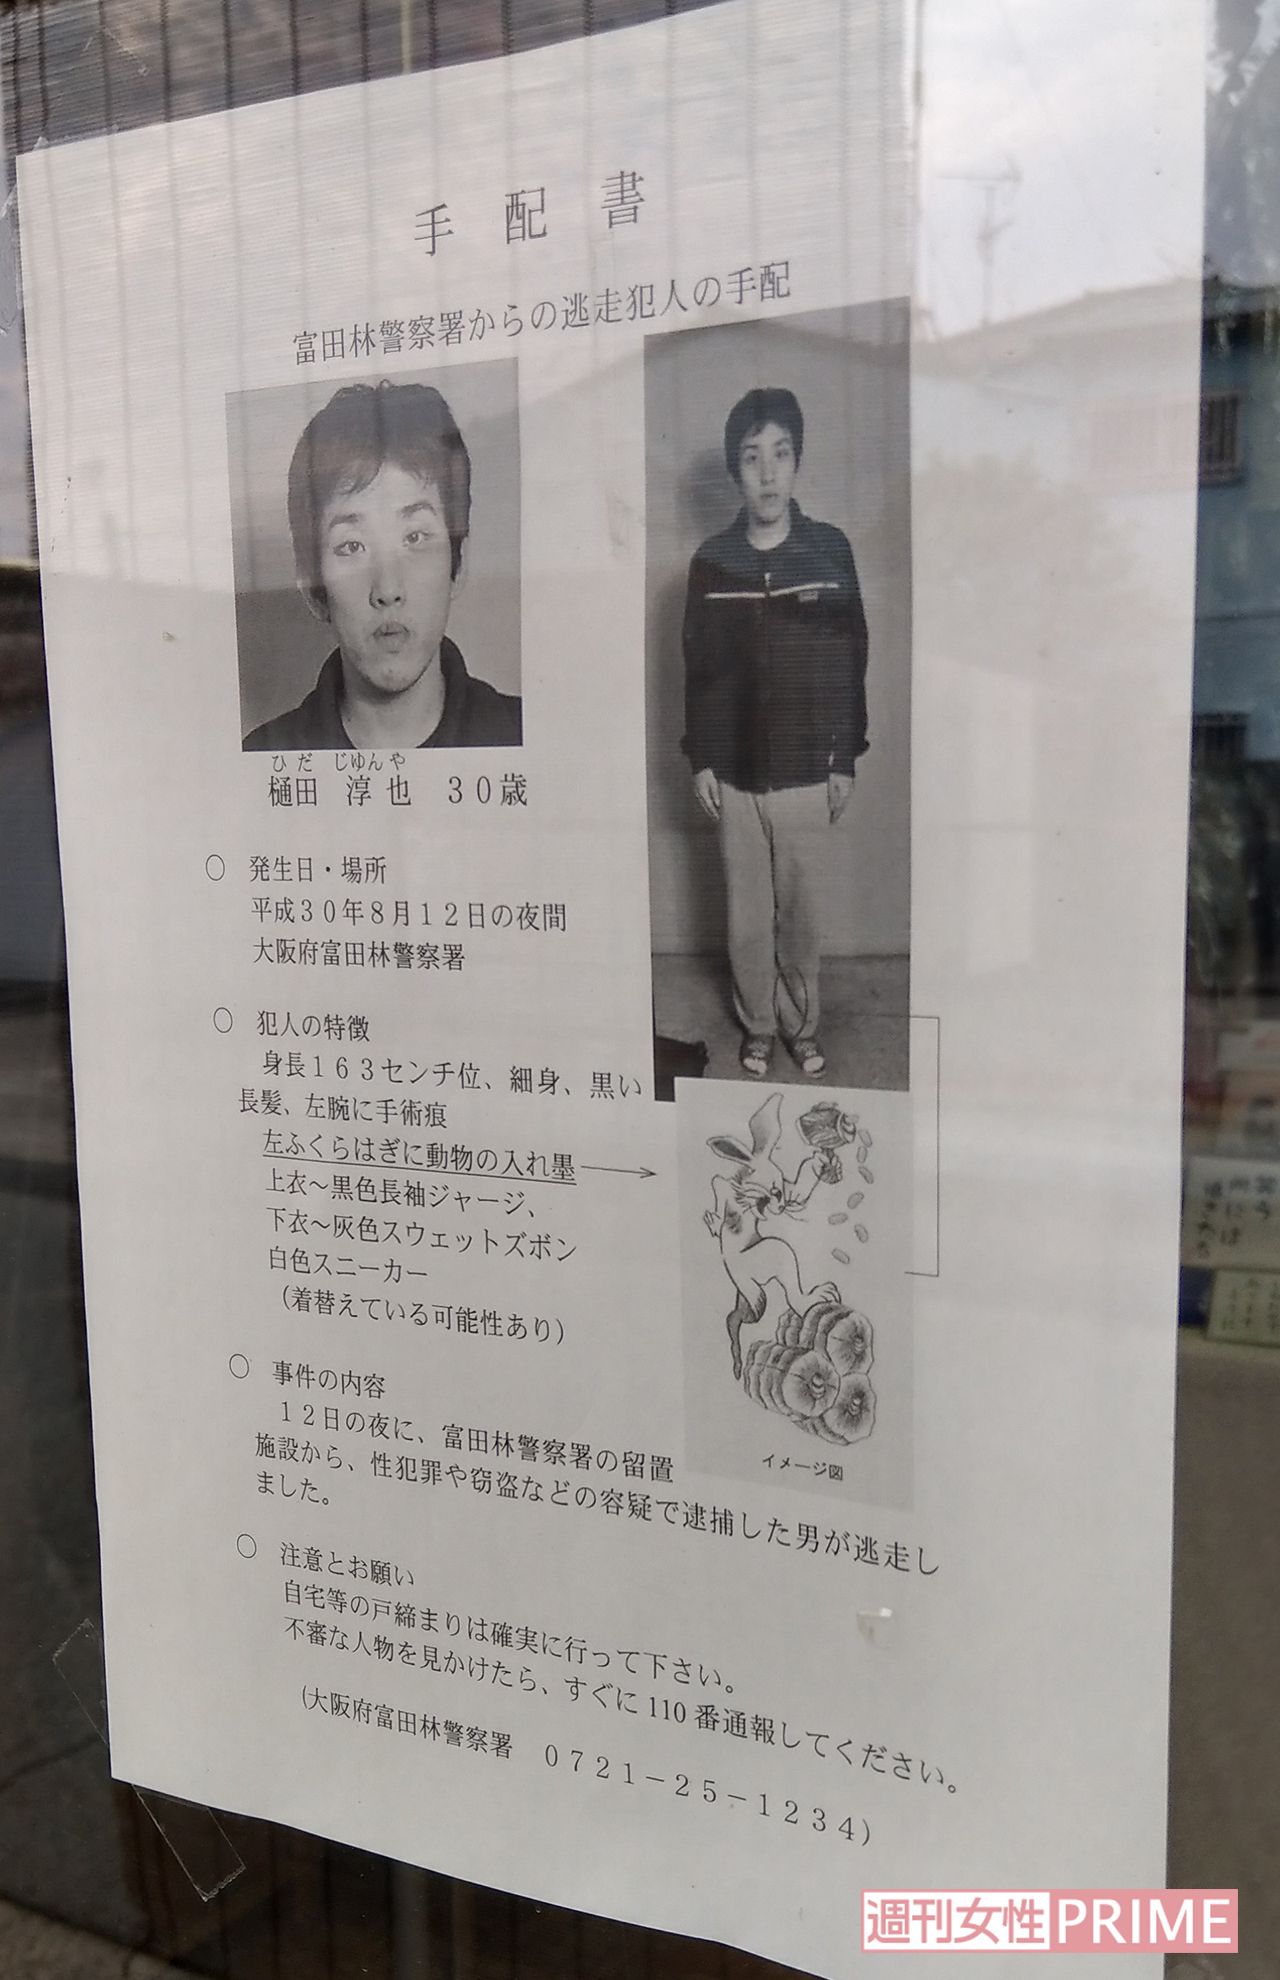 手配書
富田林警察署からの逃走犯人の手配
ひだ じゆんや
樋田 淳也 30歳
○ 発生日・場所
平成30年8月12日の夜間
大阪府富田林警察署
○ 犯人の特徴
身長163センチ位、細身、黒い
長髪、左腕に手術痕
左ふくらはぎに動物の入れ墨
上衣～黒色長袖ジャージ、
下衣～灰色スウェットズボン
白色スニーカー
（着替えている可能性あり）
イメージ図
○ 事件の内容
12日の夜に、富田林警察署の留置
施設から、性犯罪や窃盗などの容疑で逮捕した男が逃走し
ました。
○ 注意とお願い
自宅等の戸締まりは確実に行って下さい。
不審な人物を見かけたら、すぐに110番通報してください。
（大阪府富田林警察署 0721－25－1234）
週刊女性PRIME